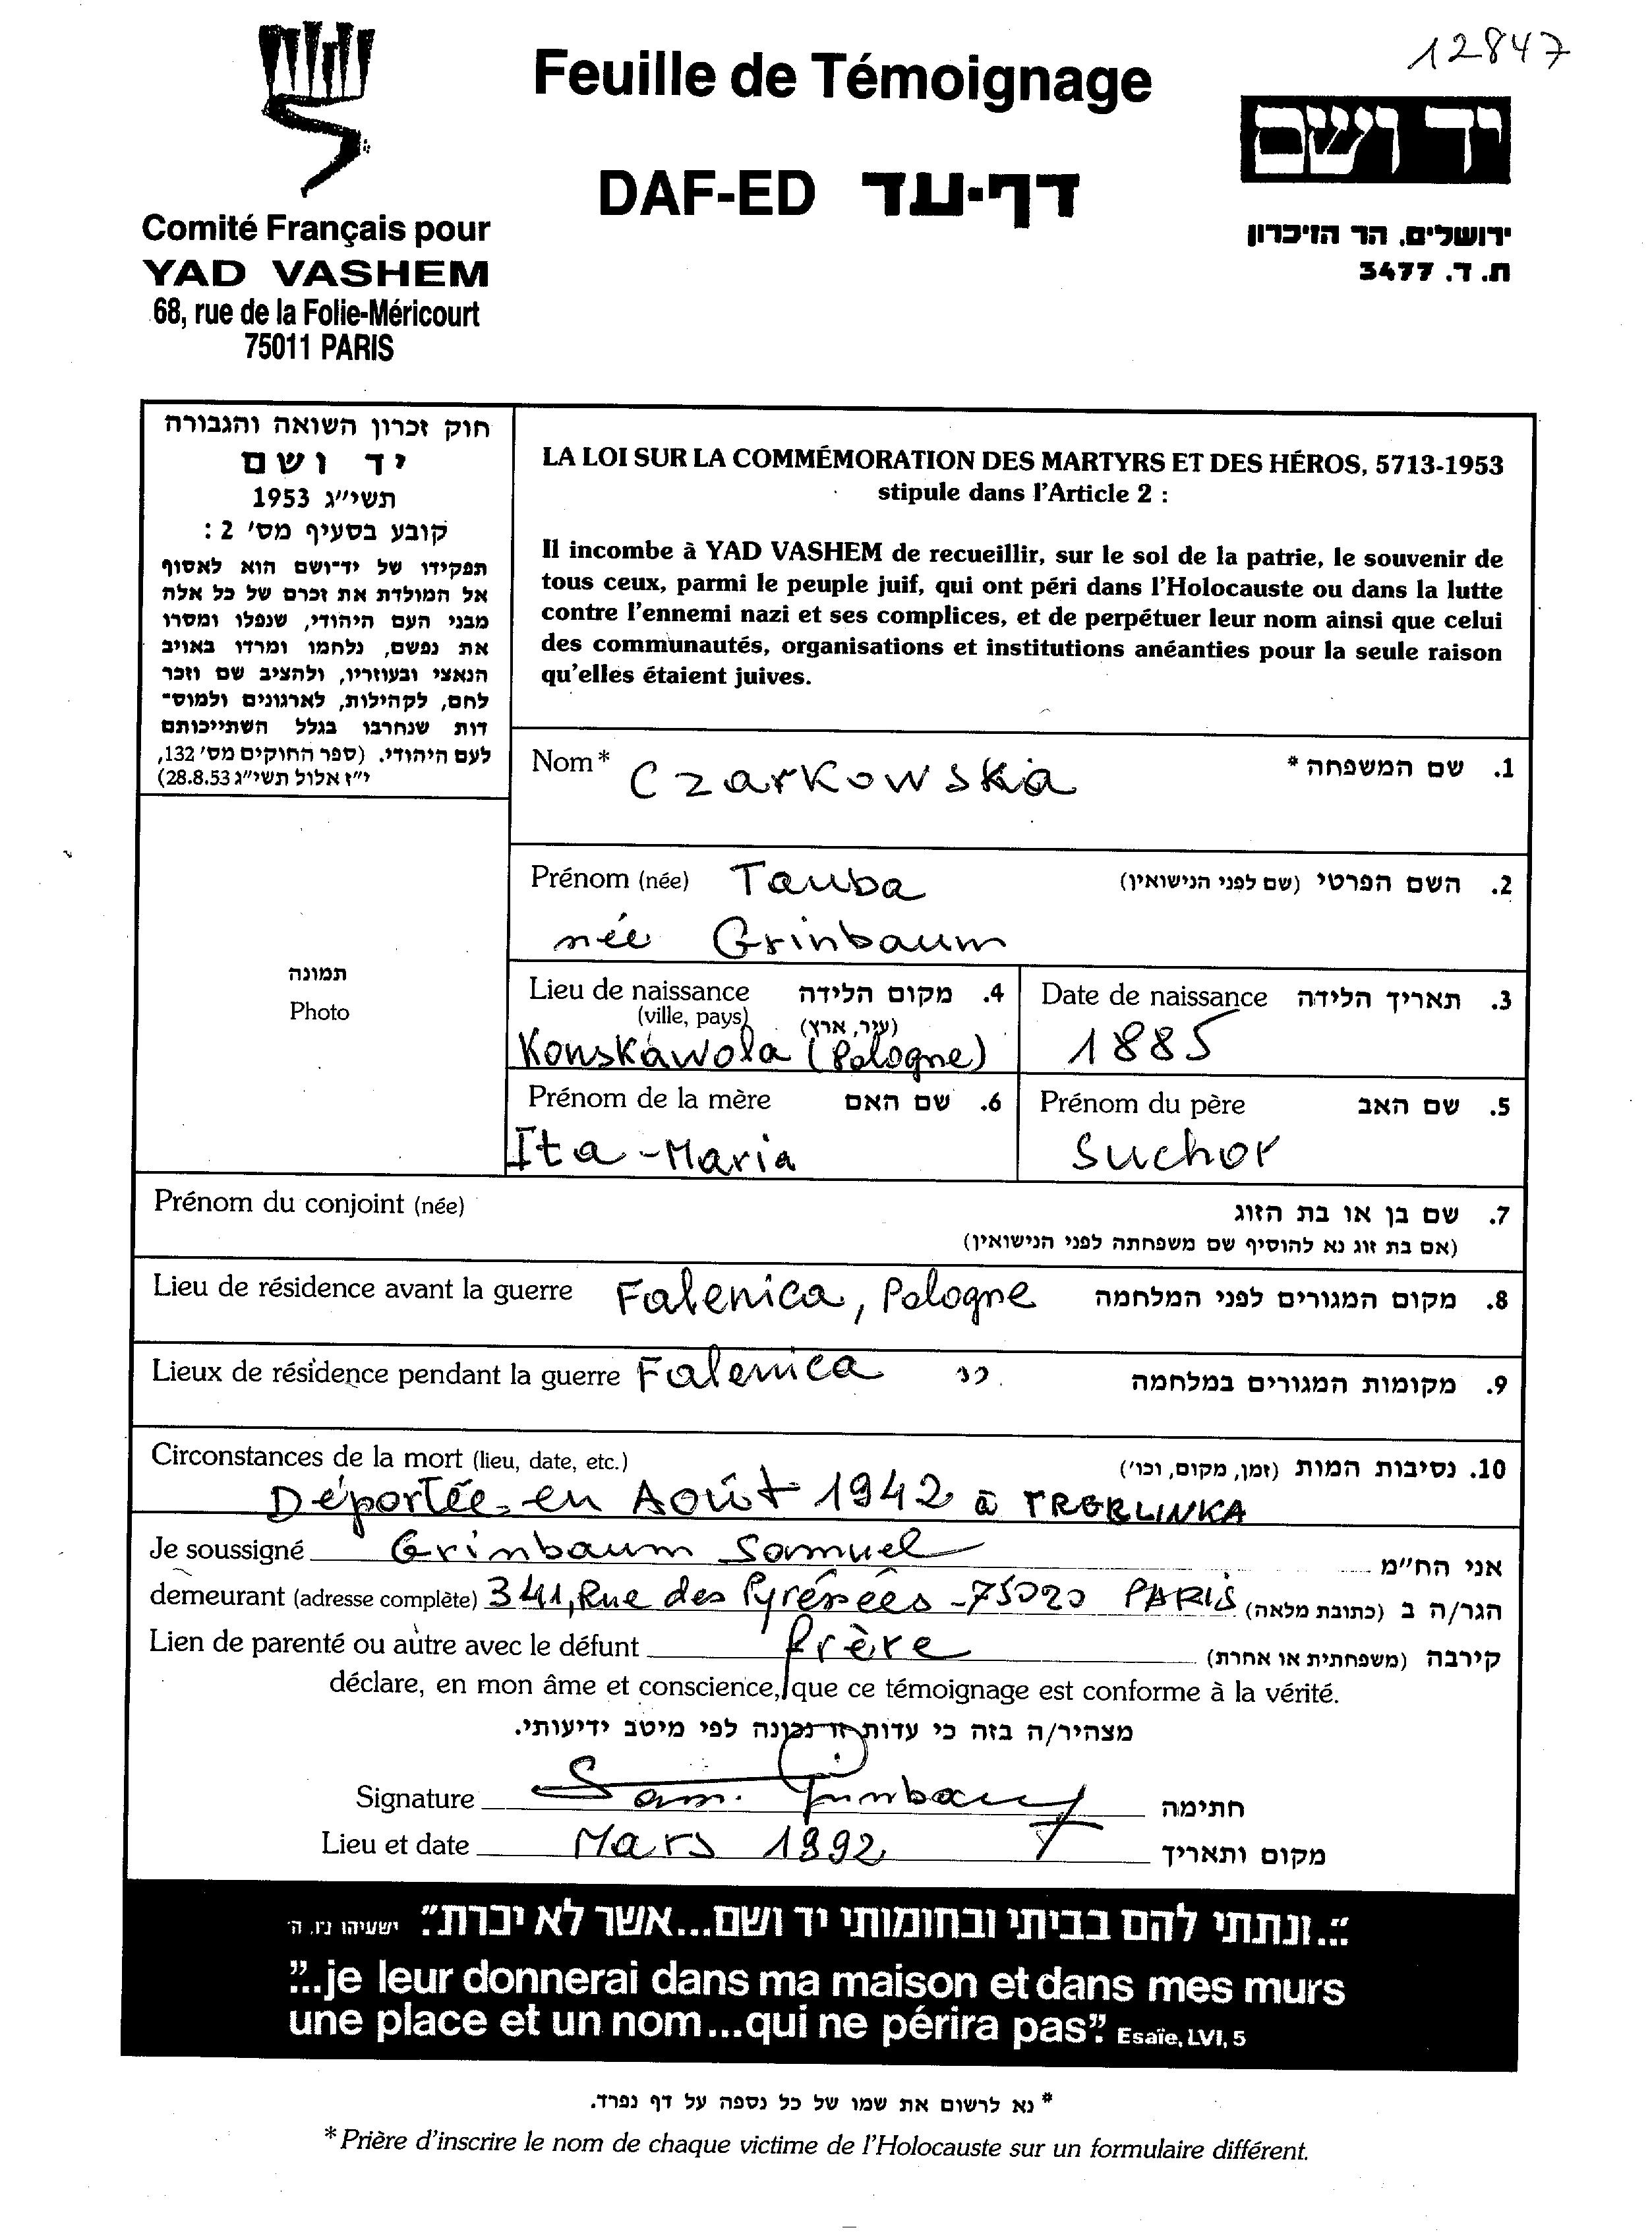 12847
Feuille de Témoignage
DAF-ED דף-עד
יד ושם
ירושלים. הר הזיכרון
ת. ד. 3477
Comité Français pour
YAD VASHEM
68, rue de la Folie-Méricourt
75011 PARIS
חוק זכרון השואה והגבורה
יד ושם
תשי״ג 1953
קובע בסעיף מס׳ 2 :
תפקידו של יד־ושם הוא לאסוף
אל המולדת את זכרם של כל אלה
מבני העם היהודי, שנפלו ומסרו
את נפשם, נלחמו ומרדו באויב
הנאצי ובעוזריו, ולהציב שם וזכר
להם, לקהילות, לארגונים ולמוס־
דות שנחרבו בגלל השתייכותם
לעם היהודי. (ספר החוקים מס׳ 132,
י״ז אלול תשי״ג 28.8.53)
LA LOI SUR LA COMMÉMORATION DES MARTYRS ET DES HÉROS, 5713-1953
stipule dans l'Article 2 :
Il incombe à YAD VASHEM de recueillir, sur le sol de la patrie, le souvenir de
tous ceux, parmi le peuple juif, qui ont péri dans l'Holocauste ou dans la lutte
contre l'ennemi nazi et ses complices, et de perpétuer leur nom ainsi que celui
des communautés, organisations et institutions anéanties pour la seule raison
qu'elles étaient juives.
Nom* Czarkowska 1. שם המשפחה *
Prénom (née) Tauba 2. השם הפרטי (שם לפני הנישואין)
née Grinbaum
תמונה
Photo
Lieu de naissance 4. מקום הלידה
(ville, pays) (עיר, ארץ)
Konskawola (Pologne)
Date de naissance 3. תאריך הלידה
1885
Prénom de la mère 6. שם האם
Ita-Maria
Prénom du père 5. שם האב
Suchor
Prénom du conjoint (née) 7. שם בן או בת הזוג
(אם בת זוג נא להוסיף שם משפחתה לפני הנישואין)
Lieu de résidence avant la guerre Falenica, Pologne 8. מקום המגורים לפני המלחמה
Lieux de résidence pendant la guerre Falenica " 9. מקומות המגורים במלחמה
Circonstances de la mort (lieu, date, etc.) 10. נסיבות המות (זמן, מקום, וכו׳)
Déportée en Août 1942 à TREBLINKA
Je soussigné Grinbaum Samuel אני הח״מ
demeurant (adresse complète) 341, Rue des Pyrénées - 75020 PARIS הגר/ה ב (כתובת מלאה)
Lien de parenté ou autre avec le défunt frère קירבה (משפחתית או אחרת)
déclare, en mon âme et conscience, que ce témoignage est conforme à la vérité.
מצהיר/ה בזה כי עדות זו נכונה לפי מיטב ידיעותי.
Signature Sam. Grinbaum חתימה
Lieu et date Mars 1992 מקום ותאריך
"...ונתתי להם בביתי ובחומותי יד ושם...אשר לא יכרת". ישעיהו נ״ו, ה׳
"...je leur donnerai dans ma maison et dans mes murs
une place et un nom...qui ne périra pas". Esaïe, LVI, 5
* נא לרשום את שמו של כל נספה על דף נפרד.
*Prière d'inscrire le nom de chaque victime de l'Holocauste sur un formulaire différent.